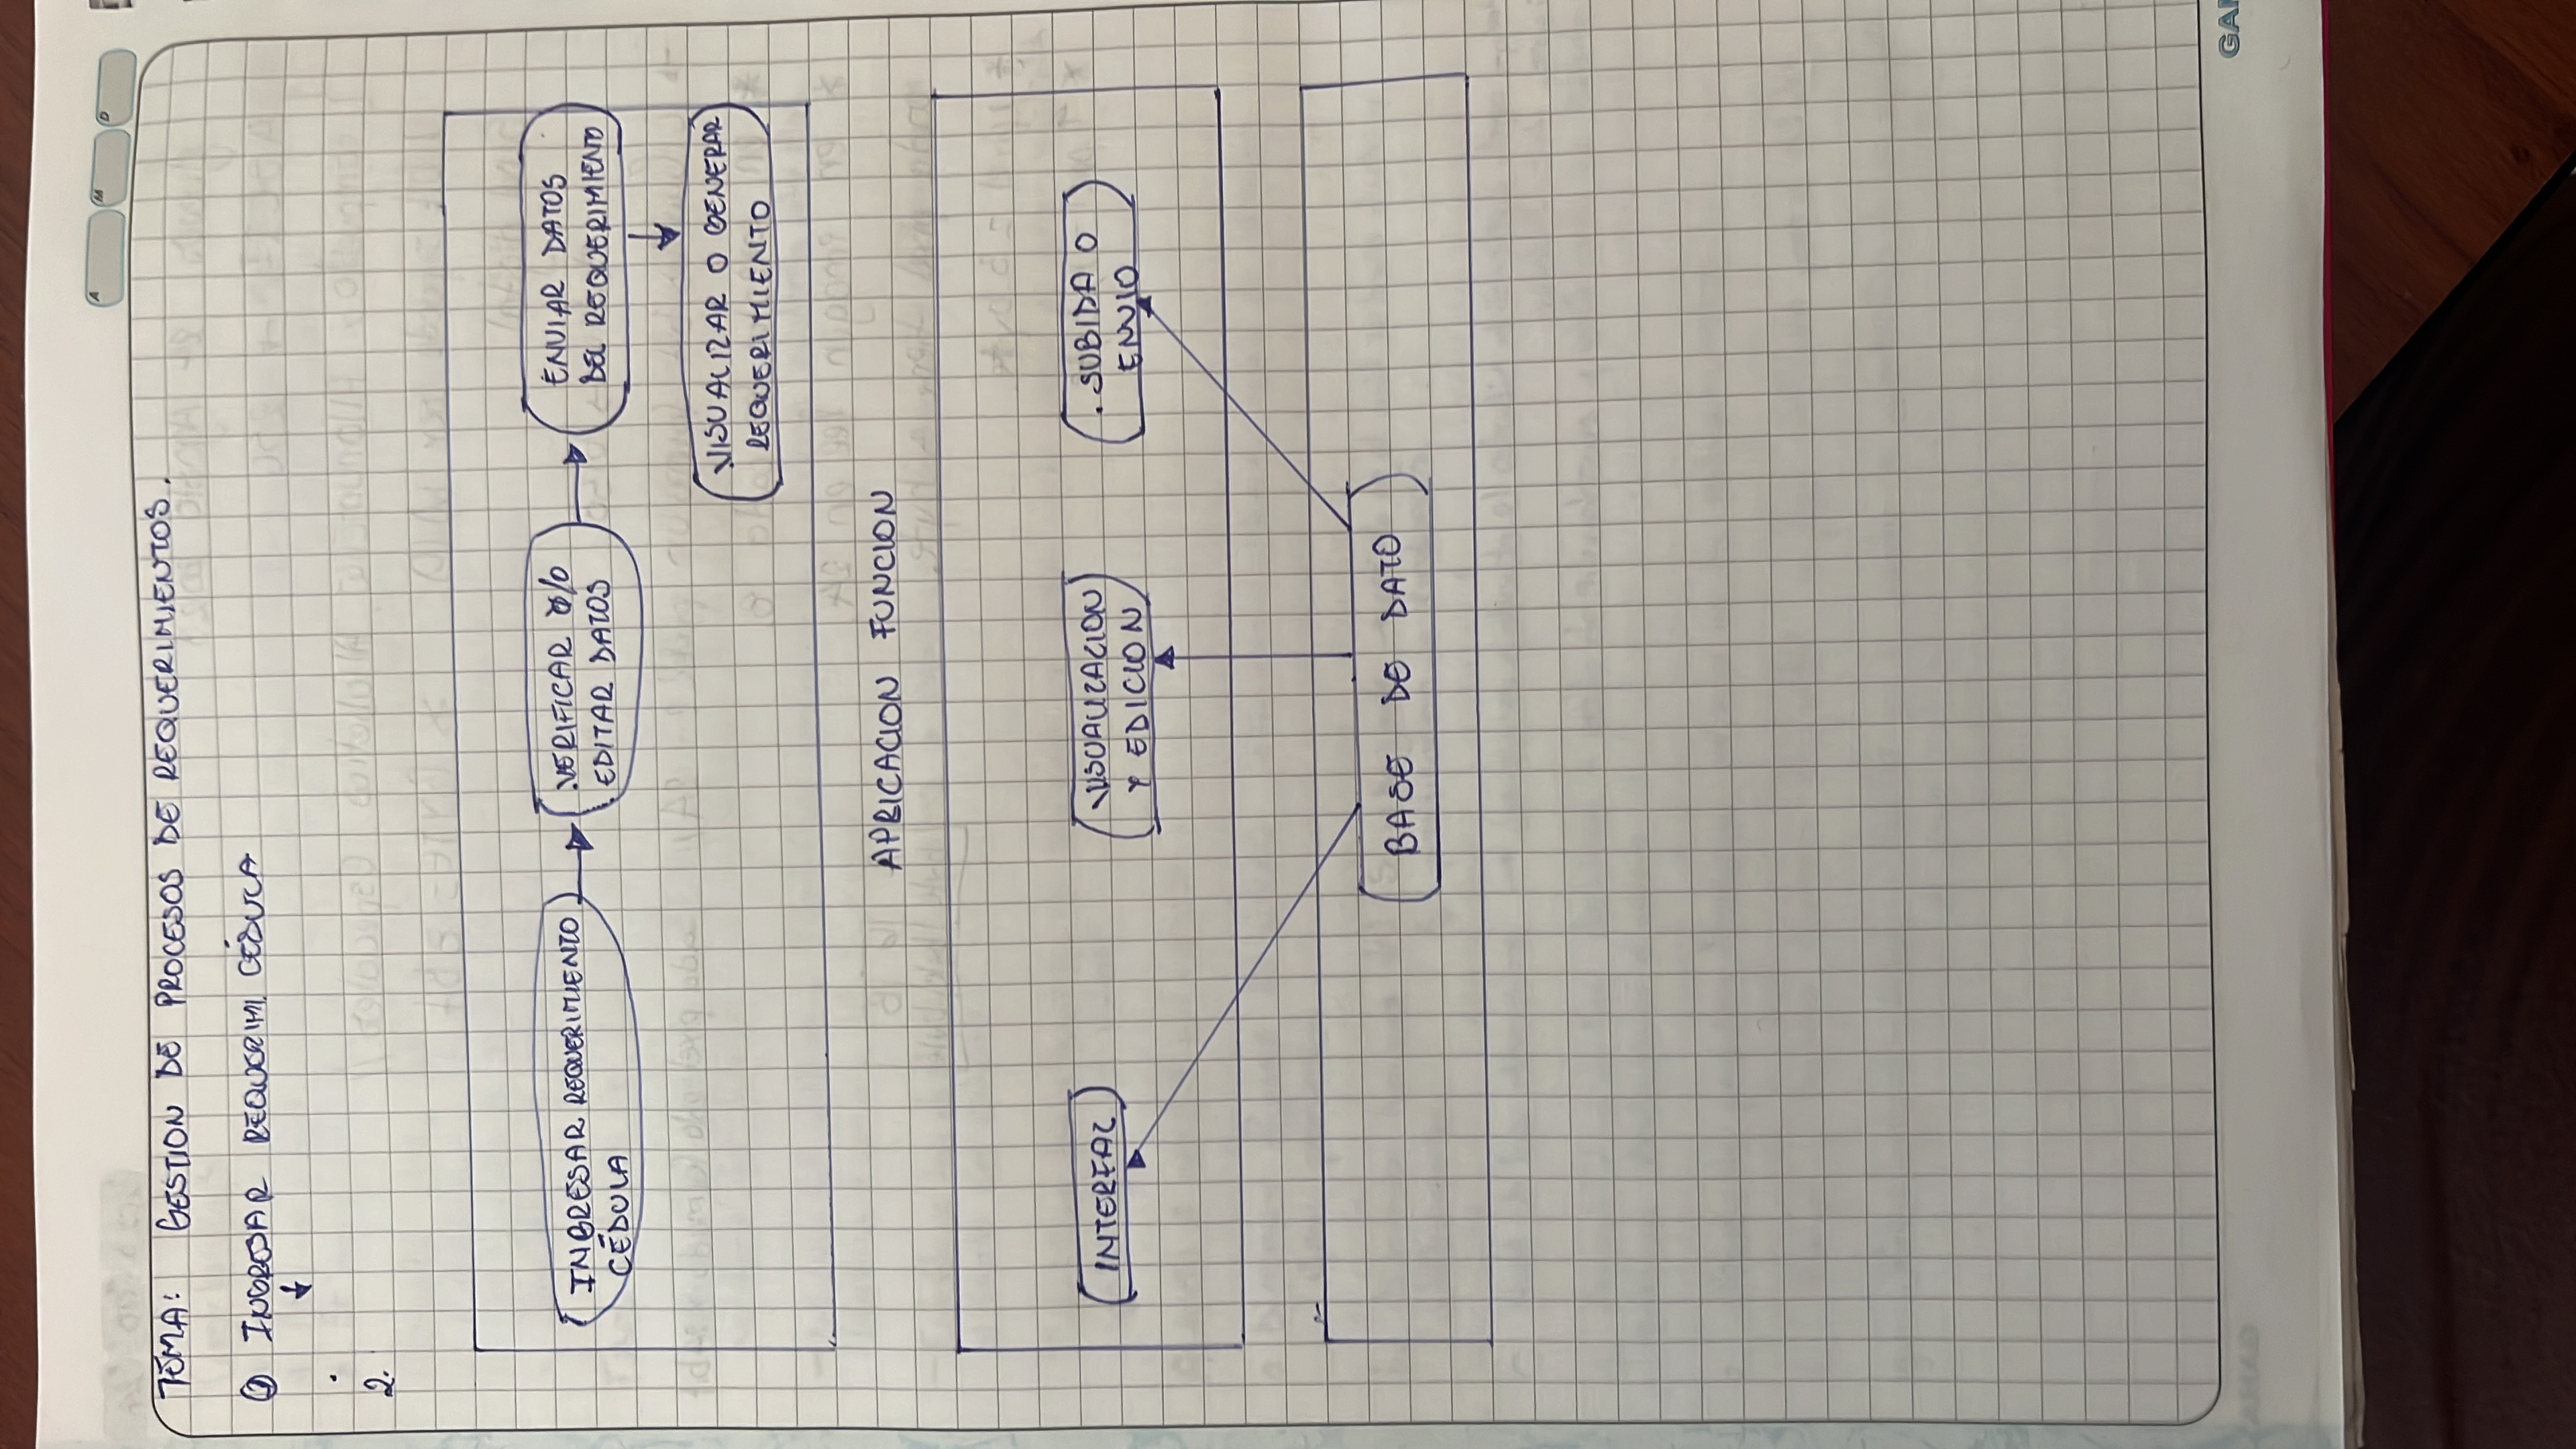 A M D
TEMA: GESTION DE PROCESOS DE REQUERIMIENTOS.
① INGRESAR REQUERIMI. CÉDULA
2.
INGRESAR REQUERIMIENTO
CÉDULA
VERIFICAR
EDITAR DATOS
ENVIAR DATOS
DEL REQUERIMIENTO
VISUALIZAR O GENERAR
REQUERIMIENTO
APLICACION FUNCION
INTERFAZ
VISUALIZACION
Y EDICION
. SUBIDA O
ENVIO
BASE DE DATO